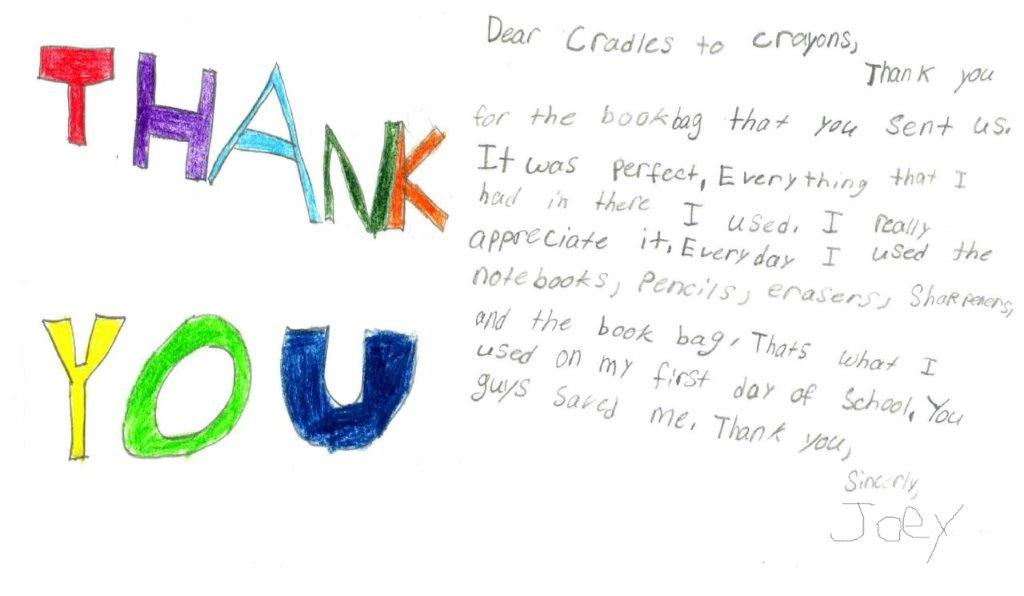 THANK
YOU
Dear Cradles to crayons,
Thank you
for the bookbag that you sent us.
It was perfect, Everything that I
had in there I used. I really
appreciate it, Everyday I used the
notebooks, Pencils, erasers, Sharpeners,
and the book bag, Thats what I
used on my first day of School. You
guys saved me. Thank you,
Sincerly,
Joey